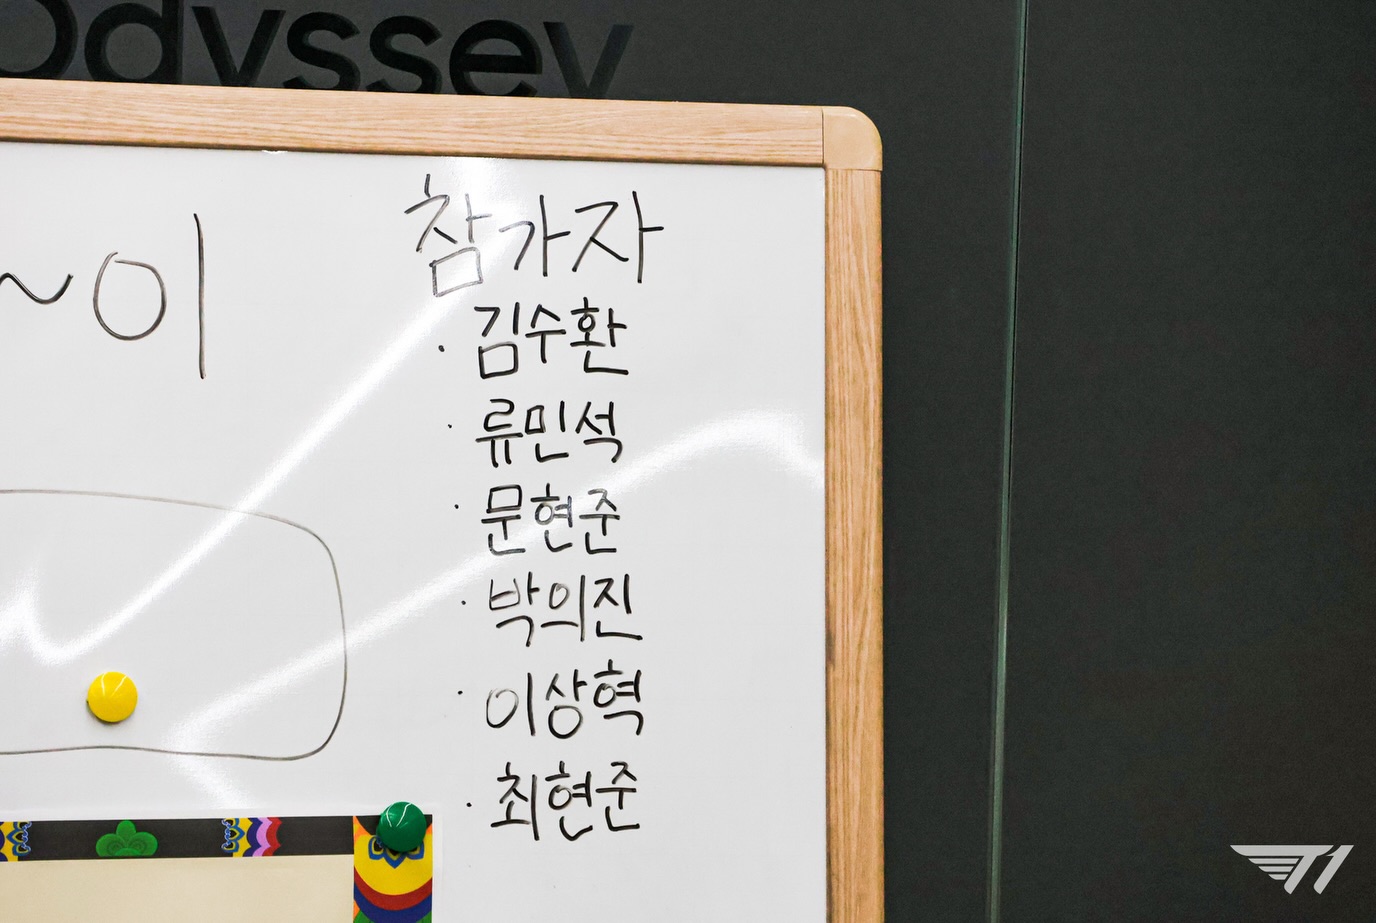 Odyssey
참가자
~이
· 김수환
· 류민석
· 문현준
· 박의진
· 이상혁
· 최현준
T1